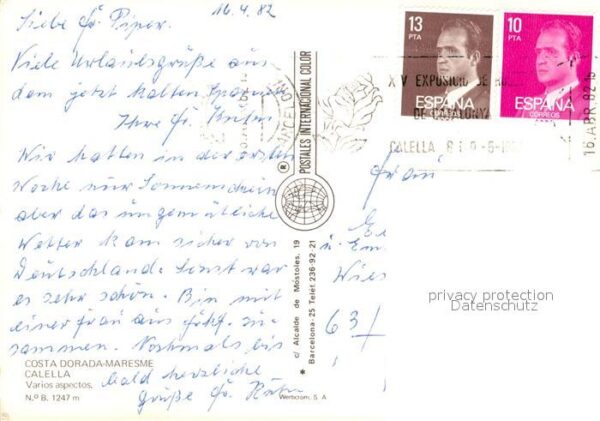 16.4.82
Liebe Fr. Piper.
Viele Urlaubsgrüße aus
dem jetzt kalten Spanien
Ihre Fr.
Wir hatten in der ersten
Woche nur Sonnenschein
aber das ungemütliche
Wetter kam sicher von
Deutschland. Sonst war
es sehr schön. Bin mit
einer Frau aus zu-
sammen. Nochmals bis
bald herzliche
Grüße Fr.
COSTA DORADA-MARESME
CALELLA
Varios aspectos.
N.º B. 1247 m
POSTALES INTERNACIONAL COLOR
®
c/ Alcalde de Móstoles, 19
Barcelona-25 Teléf. 236-92-21
13
PTA
ESPAÑA
CORREOS
10
PTA
ESPAÑA
CORREOS
XV EXPOSICIO DE
DE CATALUNYA
CALELLA 8 I 9-5-
16 ABR. 82
Frau
u.
63
privacy protection
Datenschutz